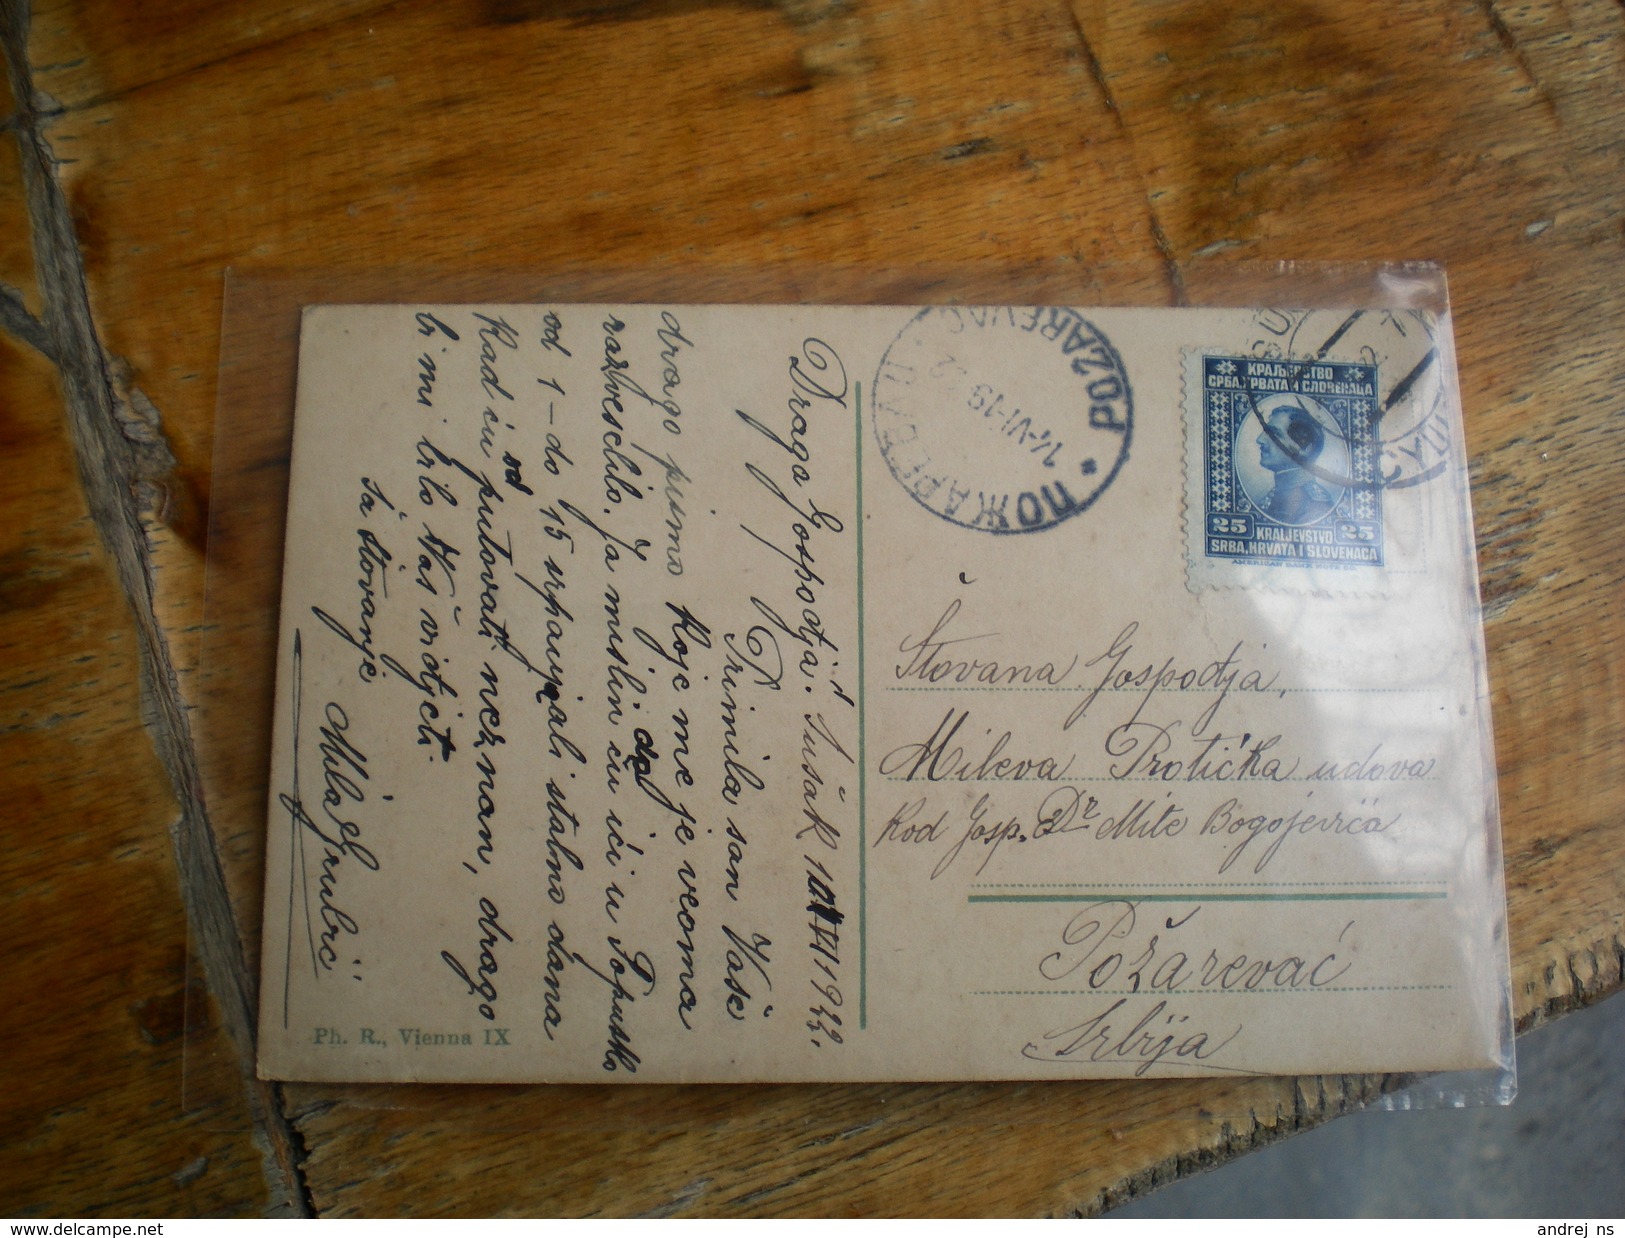 Drago Gospodja! Sušak 10/VI 1922.
P. Primila san Vaše
drago pismo koje me je veoma
razveselilo. Ja mislin ću ići u Topusko
od 1 – do 15 srpanj. da ali stalno dana
kad ću od putovati neznam, drago
bi mi bilo Vas vidjeti.
Sa štovanje
Mila
Ph. R., Vienna IX
ПОЖАРЕВАЦ
POŽAREVAC
14-VI-19 22
КРАЉЕВСТВО
СРБА, ХРВАТА И СЛОВЕНАЦА
25 25
KRALJEVSTVO
SRBA, HRVATA I SLOVENACA
AMERICAN BANK NOTE CO.
Štovana Gospodja,
Mileva Protićka udova
Kod Gosp. Dr Mite Bogojevića
Požarevać
Srbija
www.delcampe.net
andrej_ns